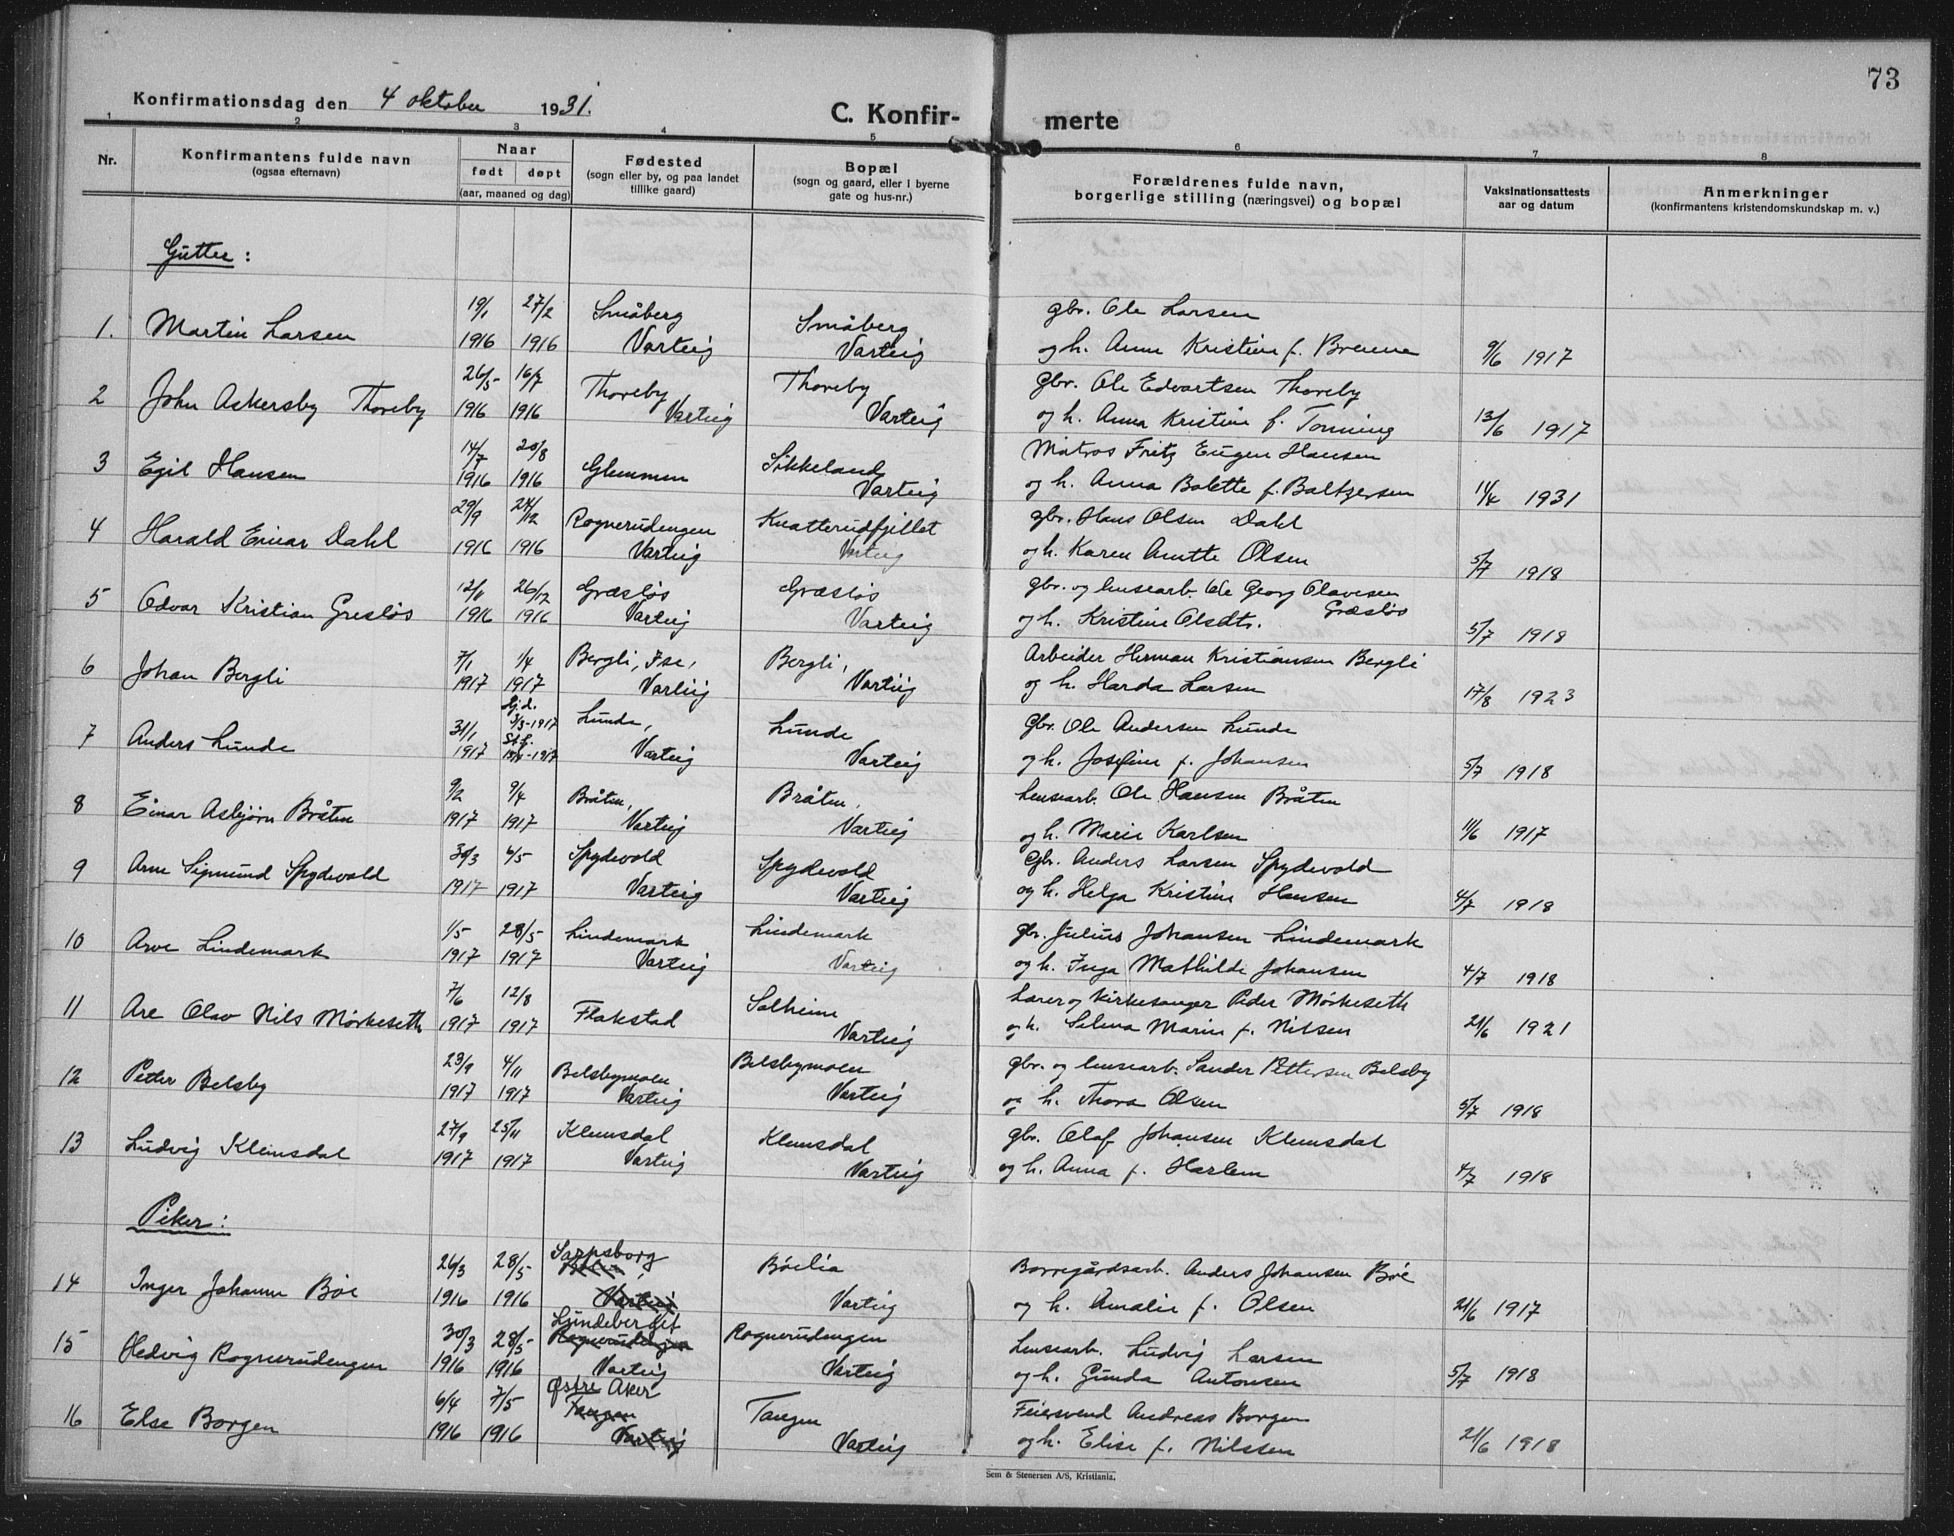 73
Konfirmationsdag den 4 oktober 1931.
C. Konfir- merte
1 2 3 4 5 6 7 8
Nr.
Konfirmantens fulde navn
(ogsaa efternavn)
Naar
født døpt
(aar, maaned og dag)
Fødested
(sogn eller by, og paa landet
tillike gaard)
Bopæl
(sogn og gaard, eller i byerne
gate og hus-nr.)
Forældrenes fulde navn,
borgerlige stilling (næringsvei) og bopæl
Vaksinationsattests
aar og datum
Anmerkninger
(konfirmantens kristendomskundskap m. v.)
Gutter:
1. Martin Larsen 19/1 1916 27/2 1916 Småberg Varteig Småberg Varteig gbr. Ole Larsen
og h. Anna Kristine f. Brenne 9/6 1917
2 John Askersby Thoreby 26/5 1916 16/7 1916 Thoreby Varteig Thoreby Varteig Gbr. Ole Edvartsen Thoreby
og h. Anna Kristine f. Tonning 13/6 1917
3 Egil Hansen 14/7 1916 20/8 1916 Glemmen Sikkeland Varteig Matros Fritz Eugen Hansen
og h. Anna Bolette f. Baltzersen 11/4 1931
4 Harald Einar Dahl 29/9 1916 24/12 1916 Rognerudengen Varteig Knatterudfjellet Varteig gbr. Hans Olsen Dahl
og h. Karen Anette Olsen 5/7 1918
5 Odvar Kristian Gresløs 12/11 1916 26/12 1916 Græsløs Varteig Græsløs Varteig gbr. og lensearb. Ole Georg Olavesen Græsløs
og h. Kristine Olsdtr. 5/7 1918
6 Johan Bergli 7/1 1917 1/4 1917 Bergli, Ise, Varteig Bergli, Varteig Arbeider Herman Kristiansen Bergli
og h. Harda Larsen 17/8 1923
7 Anders Lunde 31/1 1917 Hj.d. 3/3-1917 Lunde, Varteig Lunde Varteig Gbr. Ole Andersen Lunde
og h. Josefine f. Johansen 5/7 1918
8 Einar Asbjørn Bråten 9/2 1917 9/4 1917 Bråten, Varteig Bråten, Varteig Lensearb. Ole Hansen Bråten
og h. Marie Karlsen 11/6 1917
9 Arne Sigmund Spydevold 30/3 1917 6/5 1917 Spydevold Varteig Spydevold Varteig Gbr. Anders Larsen Spydevold
og h. Helga Kristine Hansen 4/7 1918
10 Arve Lindemark 1/5 1917 28/5 1917 Lindemark Varteig Lindemark Varteig gbr. Julius Johansen Lindemark
og h. Inga Mathilde Johansen 4/7 1918
11 Are Olav Nils Mørkeseth 7/6 1917 12/8 1917 Flakstad Solheim Varteig Lærer og kirkesanger Peder Mørkeseth
og h. Selma Marie f. Nilsen 21/6 1921
12 Petter Belsby 23/9 1917 4/11 1917 Belsbymoen Varteig Belsbymoen Varteig gbr. og lensearb. Sander Pettersen Belsby
og h. Thora Olsen 5/7 1918
13 Ludvig Klemsdal 27/9 1917 25/11 1917 Klemsdal Varteig Klemsdal Varteig gbr. Olaf Johansen Klemsdal
og h. Anna f. Harlem 4/7 1918
Piker:
14 Inger Johanne Böe 26/3 1916 28/5 1916 Sarpsborg Varteig Böelia Varteig Borregårdsarb. Anders Johansen Böe
og h. Amalie f. Olsen 21/6 1917
15 Hedvig Rognerudengen 30/3 1916 28/5 1916 Lundeberget Rognerudengen Varteig Rognerudengen Varteig Lensearb. Ludvig Larsen
og h. Gunda Antonsen 5/7 1918
16 Else Borgen 6/4 1916 7/5 1916 Østre Aker Tangen Varteig Tangen Varteig Feiersvend Andreas Borgen
og h. Elise f. Nilssen 21/6 1918
Sem & Stenersen A/S, Kristiania.